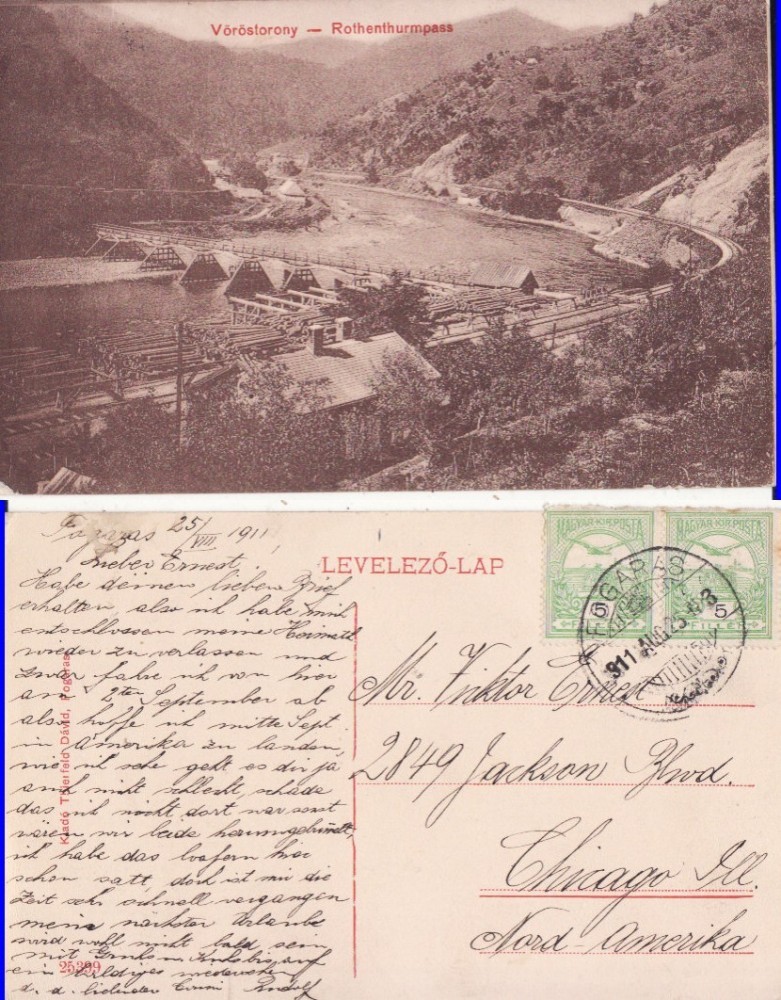 Vöröstorony — Rothenthurmpass
Fogaras 25/VIII 1911
Lieber Ernest.
Habe deinen lieben Brief
erhalten, also ich habe mich
entschlossen meine Heimath
wieder zu verlassen und
zwar fahre ich von hier
am 5ten September ab
also hoffe ich mitte Sept
in Amerika zu landen,
wie ich sehe geht es dir ja
auch nicht schlecht, schade
das ich nicht dort war sonst
wären wir beide herumgebümelt,
ich habe das loafern hier
schon satt, doch ist mir die
Zeit sehr schnell vergangen
mein nächster Urlaube
wird wohl nicht bald sein
mit Gruß u. Kuß bis auf
ein baldiges wiedersehen
d. d. liebender Rudolf
25399
Kiadó Thierfeld Dávid, Fogaras
LEVELEZŐ-LAP
MAGYAR·KIR·POSTA
MAGYAR·KIR·POSTA
5
5
FILLÉR
FOGARAS
911 AUG 25
Mr. Viktor Ernest
2849 Jackson Blwd.
Chicago Ill.
Nord-Amerika